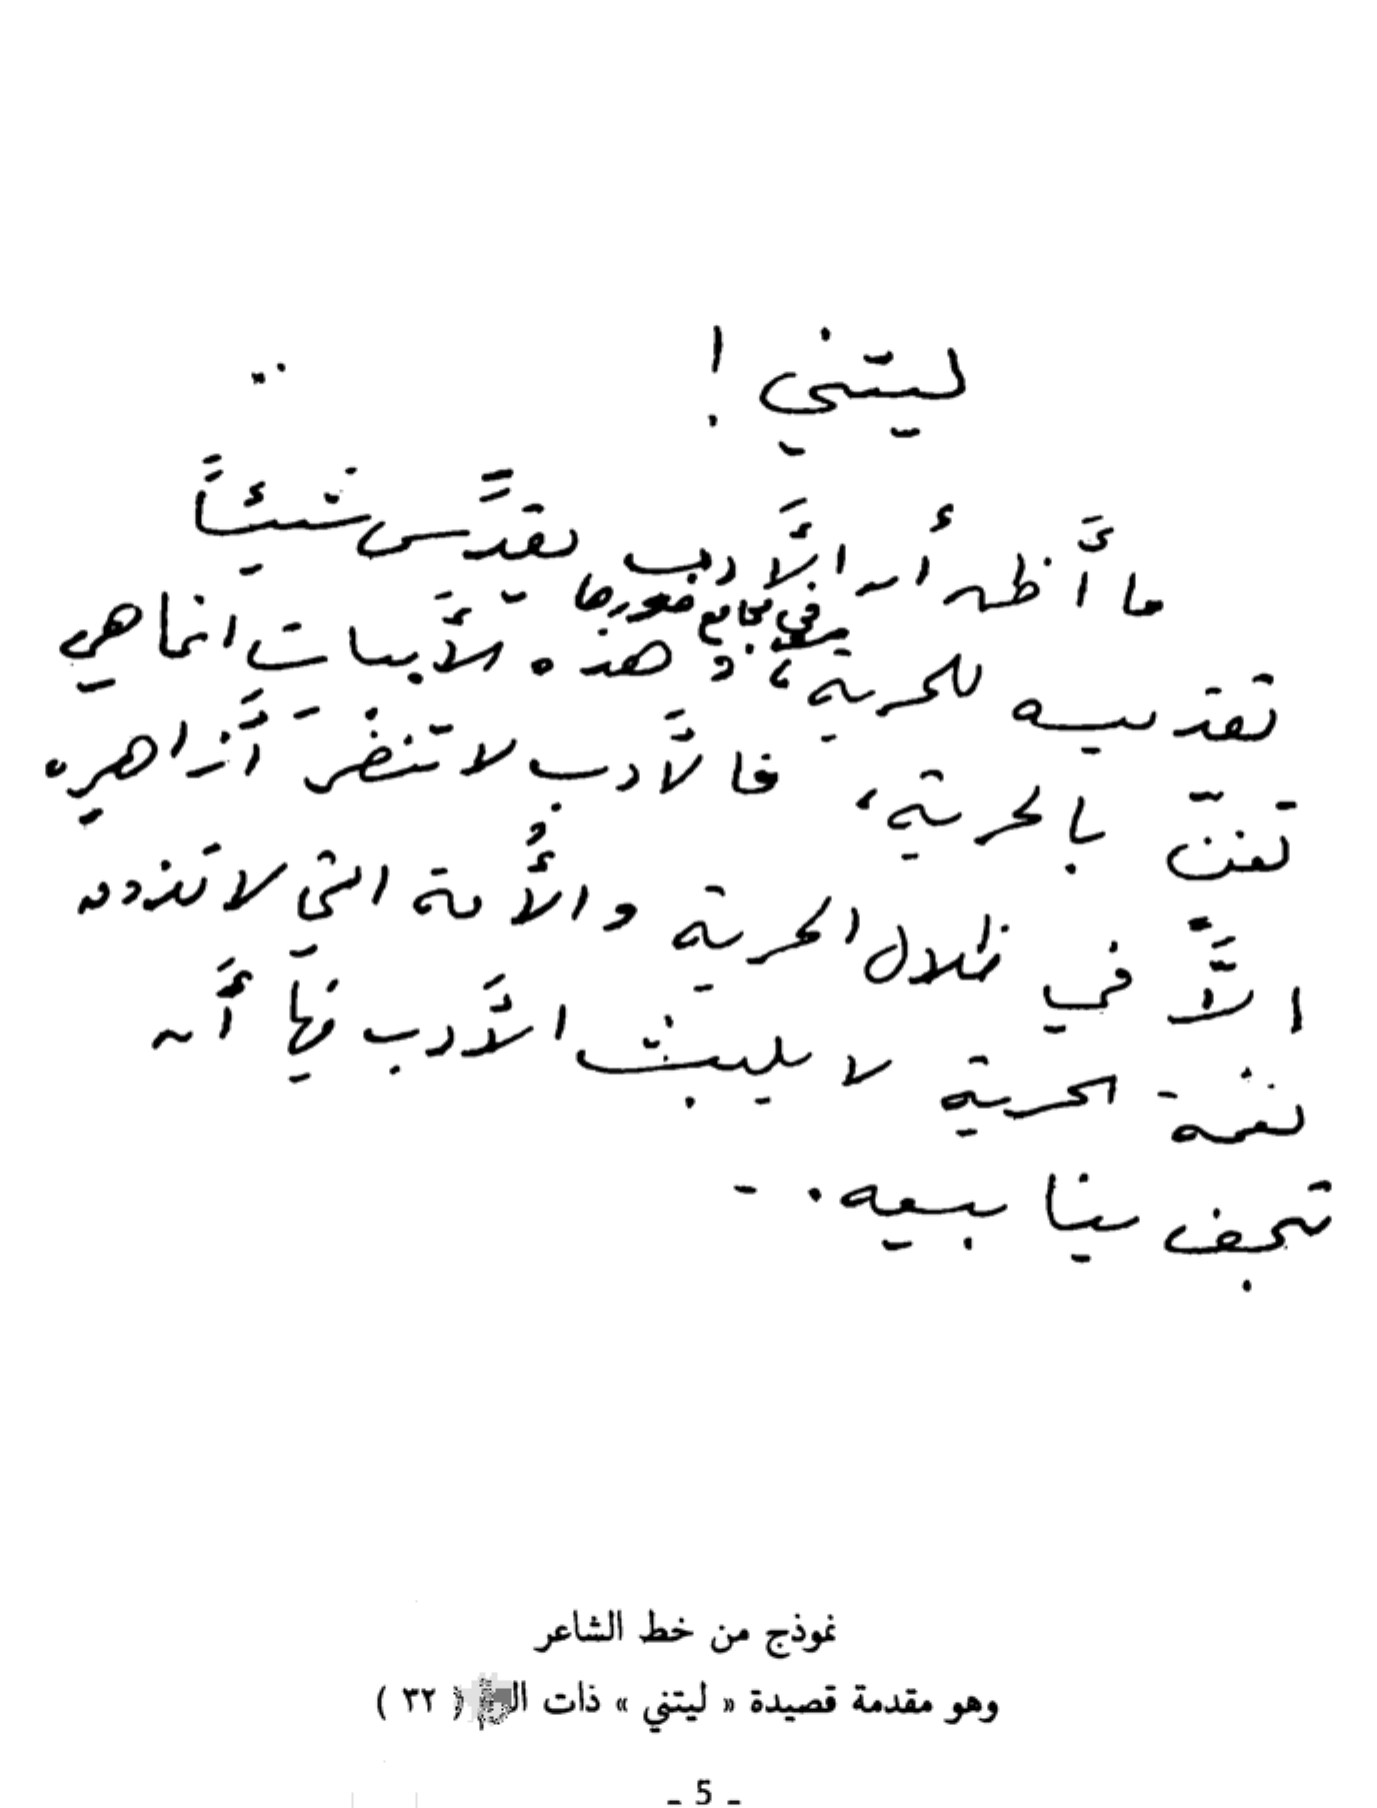 ليتني !
ما أَظن أن الأَدب يقدَّس شيئاً
في مجامع
تقديسه للحرية، وهذه الأَبيات انما هي
تغنّ بالحرية، فالأَدب لا تنضرَ أَزاهيره
الاَّ في ظلال الحرية والأُمة التي لا تذوق
نغمة الحرية لا يلبث الأَدب فيها أَن
تجف ينابيعه . -
نموذج من خط الشاعر
وهو مقدمة قصيدة « ليتني » ذات ( ٣٢ )
- 5 -